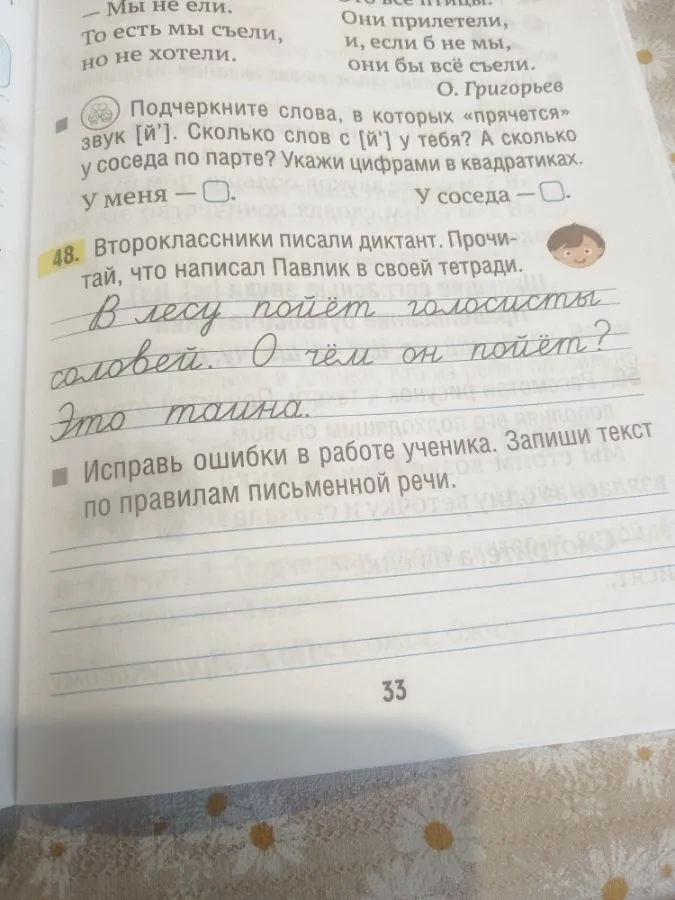 — Мы не ели.
То есть мы съели,
но не хотели.
Они прилетели,
и, если б не мы,
они бы всё съели.
О. Григорьев
Подчеркните слова, в которых «прячется»
звук [й']. Сколько слов с [й'] у тебя? А сколько
у соседа по парте? Укажи цифрами в квадратиках.
У меня — . У соседа — .
48. Второклассники писали диктант. Прочи-
тай, что написал Павлик в своей тетради.
В лесу пойёт голосисты
соловей. О чём он пойёт?
Это таина.
Исправь ошибки в работе ученика. Запиши текст
по правилам письменной речи.
33